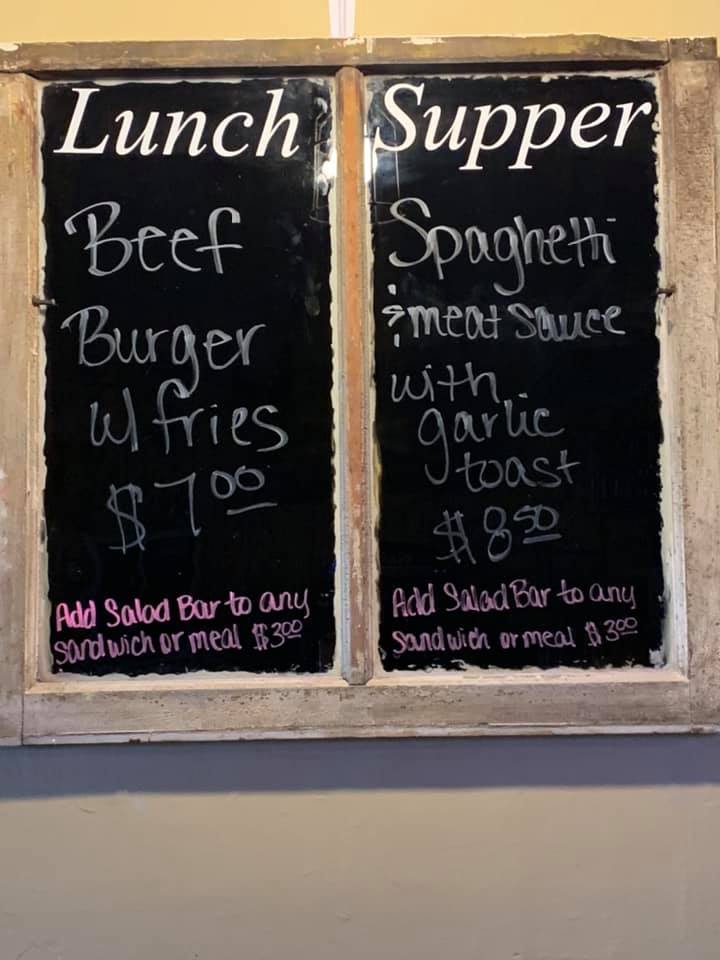 Lunch
Beef
Burger
w/ fries
$7.00
Add Salad Bar to any
sandwich or meal $3.00
Supper
Spaghetti
& meat sauce
with
garlic
toast
$8.50
Add Salad Bar to any
sandwich or meal $3.00